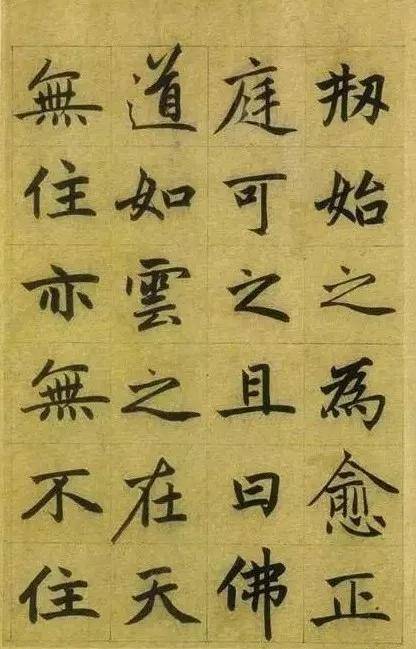 刱始之為愈正
庭可之且曰佛
道如雲之在天
無住亦無不住